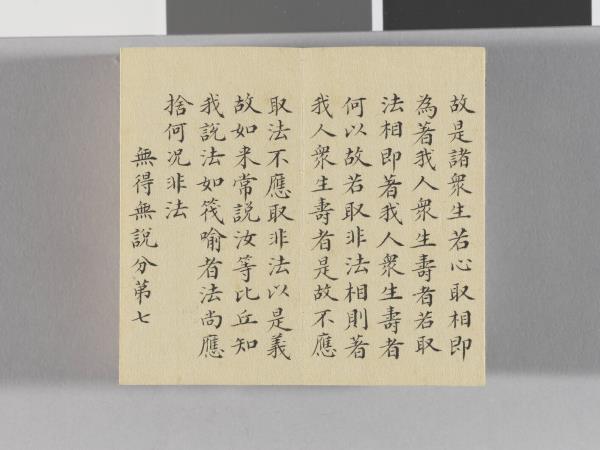 故是諸衆生若心取相即
為著我人衆生壽者若取
法相即著我人衆生壽者
何以故若取非法相則著
我人衆生壽者是故不應
取法不應取非法以是義
故如来常説汝等比丘知
我説法如筏喻者法尚應
捨何况非法
無得無說分第七